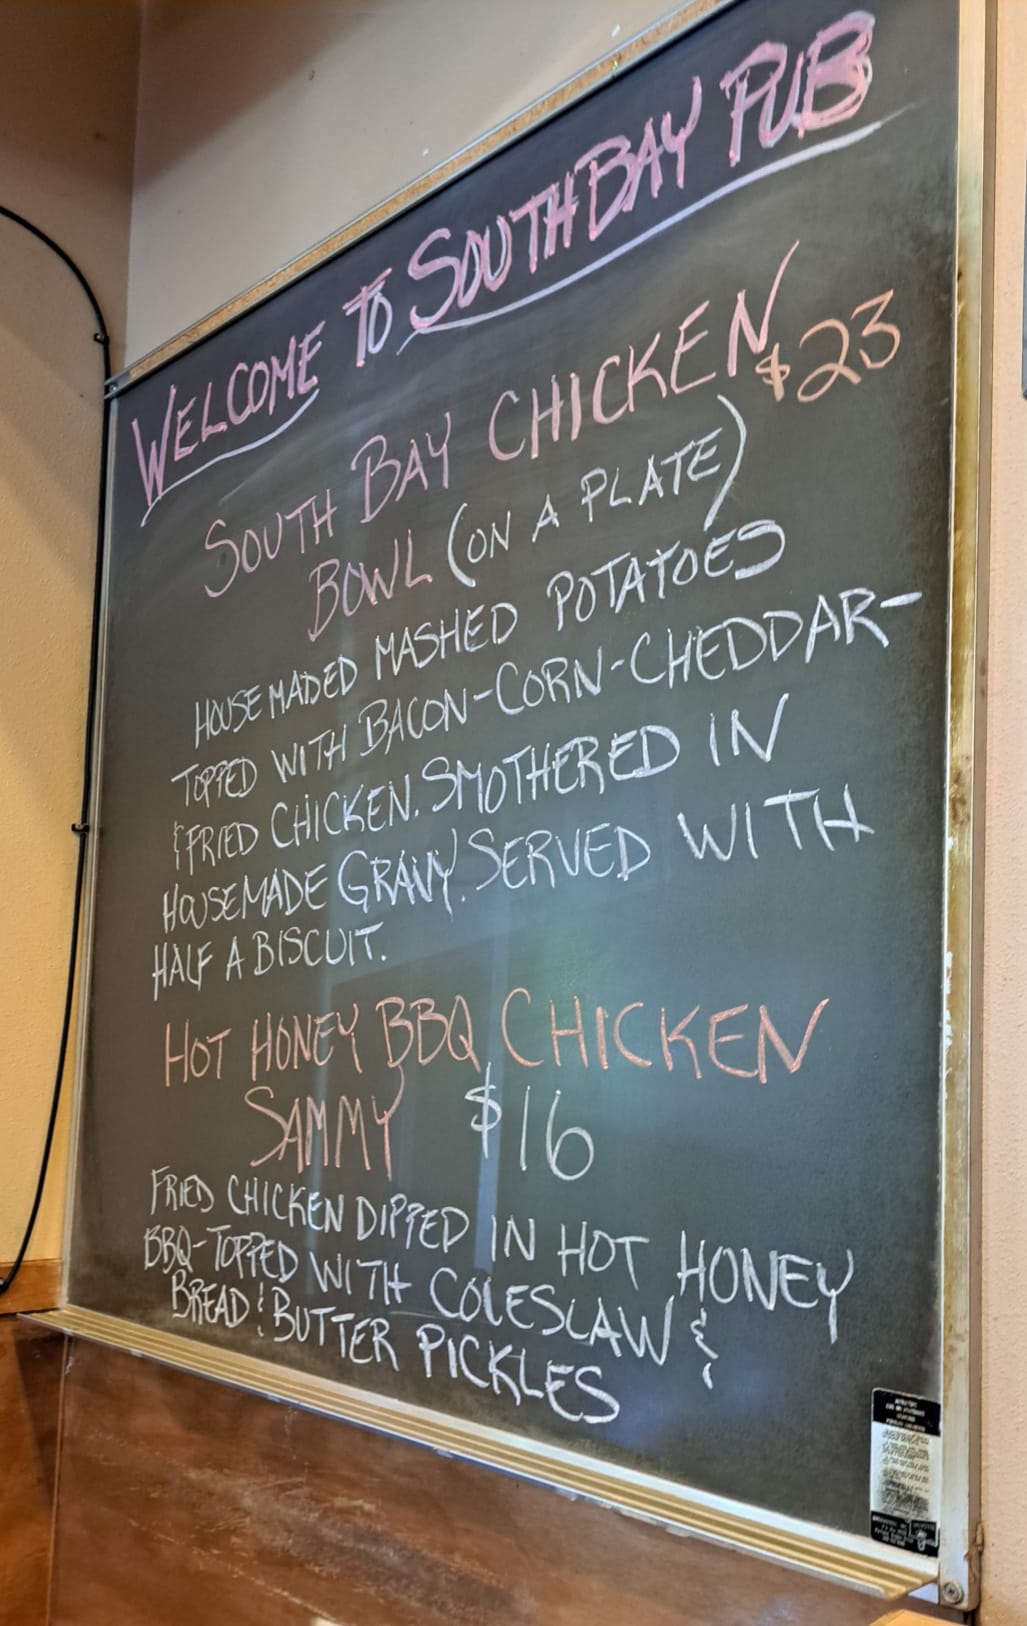 WELCOME TO SOUTH BAY PUB
SOUTH BAY CHICKEN $23
BOWL (ON A PLATE)
HOUSE MADED MASHED POTATOES
TOPPED WITH BACON-CORN-CHEDDAR-
& FRIED CHICKEN. SMOTHERED IN
HOUSEMADE GRAVY. SERVED WITH
HALF A BISCUIT.
HOT HONEY BBQ CHICKEN
SAMMY $16
FRIED CHICKEN DIPPED IN HOT HONEY
BBQ-TOPPED WITH COLESLAW &
BREAD & BUTTER PICKLES